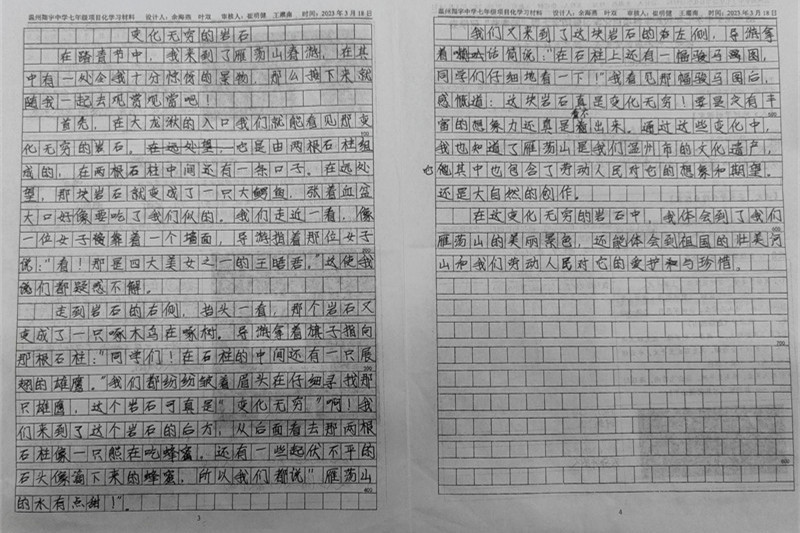 温州翔宇中学七年级项目化学习材料 设计人：余海燕 叶双 审核人：崔明健 王珊珊 时间：2023年3月18日
变化无穷的岩石
在踏青节中，我来到了雁荡山春游，在其
中有一处令我十分惊叹的景物，那么接下来就
随我一起去观赏观赏吧！
首先，在大龙湫的入口我们就能看见那变
化无穷的岩石。在远处望，也是由两根石柱组
成的，在两根石柱中间还有一条口子。在远处
望，那块岩石就变成了一只大鳄鱼，张着血盆
大口好像要吃了我们似的。我们走近一看，像
一位女子倚靠着一个墙面，导游指着那位女子
说：“看！那是四大美女之一的王昭君。”这使我
们都疑惑不解。
走到岩石的右侧，抬头一看，那个岩石又
变成了一只啄木鸟在啄树。导游拿着旗子指向
那根石柱：“同学们！在石柱的中间还有一只展
翅的雄鹰。”我们都纷纷皱着眉头在仔细寻找那
只雄鹰，这个岩石可真是“变化无穷”啊！我
们来到了这个岩石的后方，从后面看去那两根
石柱像一只熊在吃蜂蜜。还有一些起伏不平的
石头像滴下来的蜂蜜，所以我们都说“雁荡山
的水有点甜！”。
3
温州翔宇中学七年级项目化学习材料 设计人：余海燕 叶双 审核人：崔明健 王珊珊 时间：2023年3月18日
我们又来到了这块岩石的左侧，导游拿
着话筒说：“在石柱上还有一幅骏马图，
同学们仔细地看一下！”我看见那幅骏马图后，
感慨道：这块岩石真是变化无穷！要是没有丰
富的想象力还真是看不出来。通过这些变化中，
我也知道了雁荡山是我们温州市的文化遗产，
也其中也包含了劳动人民对它的想象和期望。
还是大自然的创作。
在这变化无穷的岩石中，我体会到了我们
雁荡山的美丽景色，还能体会到祖国的壮美河
山和我们劳动人民对它的爱护和与珍惜。
4